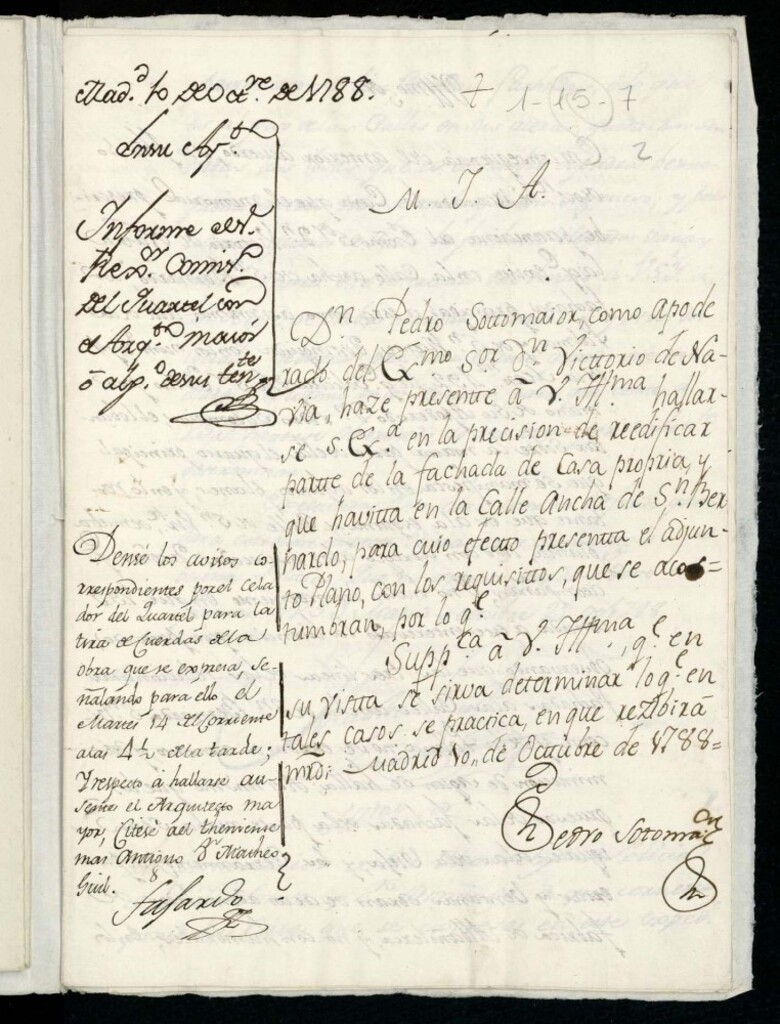 Mad.d 10 de Oct.re de 1788.
En su Ay.to
Informe el S.r
Rex.or Comis.o
del Quartel con
el Arq.to maior
ô alg.o de sus ten.te
1-15-7
2
M. I. A.
D.n Pedro Sottomaior, como apode
rado del Ex.mo S.or D.n Victtorio de Na-
via, haze presentte â V. Ill.ma hallar-
se S. Ex.a en la precision de reedificar
partte de la fachada de Casa propria, y
que havitta en la Calle Ancha de S.n Ber
nardo, para cuio efecto presentta el adjun-
to Plano, con los requisittos, que se acos-
tumbran, por lo q.e
Supp.ca â V. Ill.ma, q.e en
su vistta se sirva determinar lo q.e en
tales casos se practica, en que rezibirá
mrd: Madrid 10,, de Octtubre de 1788=
Pedro Sotomaior
Dense los avisos co-
rrespondientes por el Cela
dor del Quartel para la
tira de Cuerdas de la
obra que se expresa, se-
ñalando para ello el
Martes 14 del Corriente
a las 4 1/2 de la tarde;
Y respecto á hallarse au-
sente el Arquitecto ma
yor, Citese al theniente
mas Antiguo D.n Matheo
Guill.
Fasardo